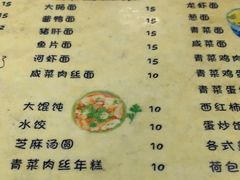 大肠面 15
酱鸭面 15
猪肝面 15
鱼片面 15
河虾面 15
咸菜肉丝面 10
大馄饨 10
水饺 10
芝麻汤圆 10
青菜肉丝年糕 10
龙虾面
葱面
青菜鸡
咸菜鸡
青菜面
青菜蛋
西红柿
蛋炒饭
各式
荷包